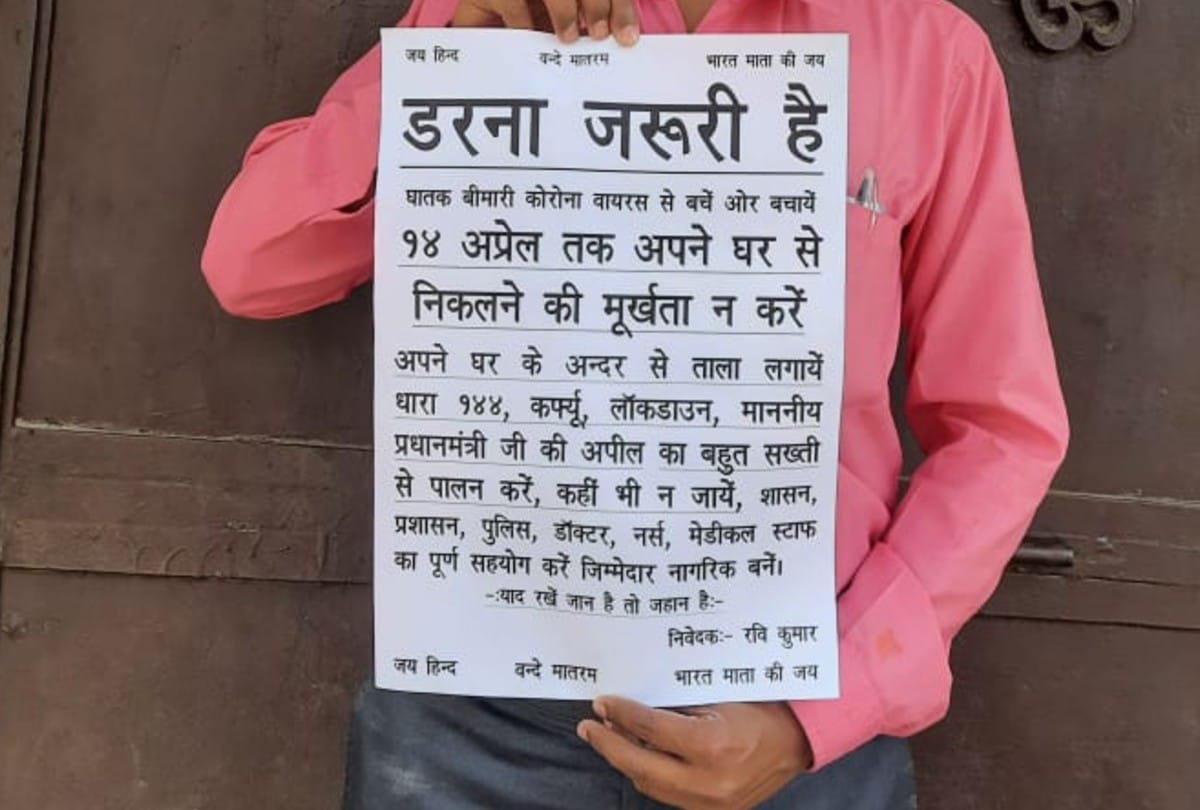 जय हिन्द वन्दे मातरम भारत माता की जय
डरना जरूरी है
घातक बीमारी कोरोना वायरस से बचें ओर बचायें
१४ अप्रेल तक अपने घर से
निकलने की मूर्खता न करें
अपने घर के अन्दर से ताला लगायें
धारा १४४, कर्फ्यू, लॉकडाउन, माननीय
प्रधानमंत्री जी की अपील का बहुत सख्ती
से पालन करें, कहीं भी न जायें, शासन,
प्रशासन, पुलिस, डॉक्टर, नर्स, मेडीकल स्टाफ
का पूर्ण सहयोग करें जिम्मेदार नागरिक बनें।
-:याद रखें जान है तो जहान है:-
निवेदक:- रवि कुमार
जय हिन्द वन्दे मातरम भारत माता की जय